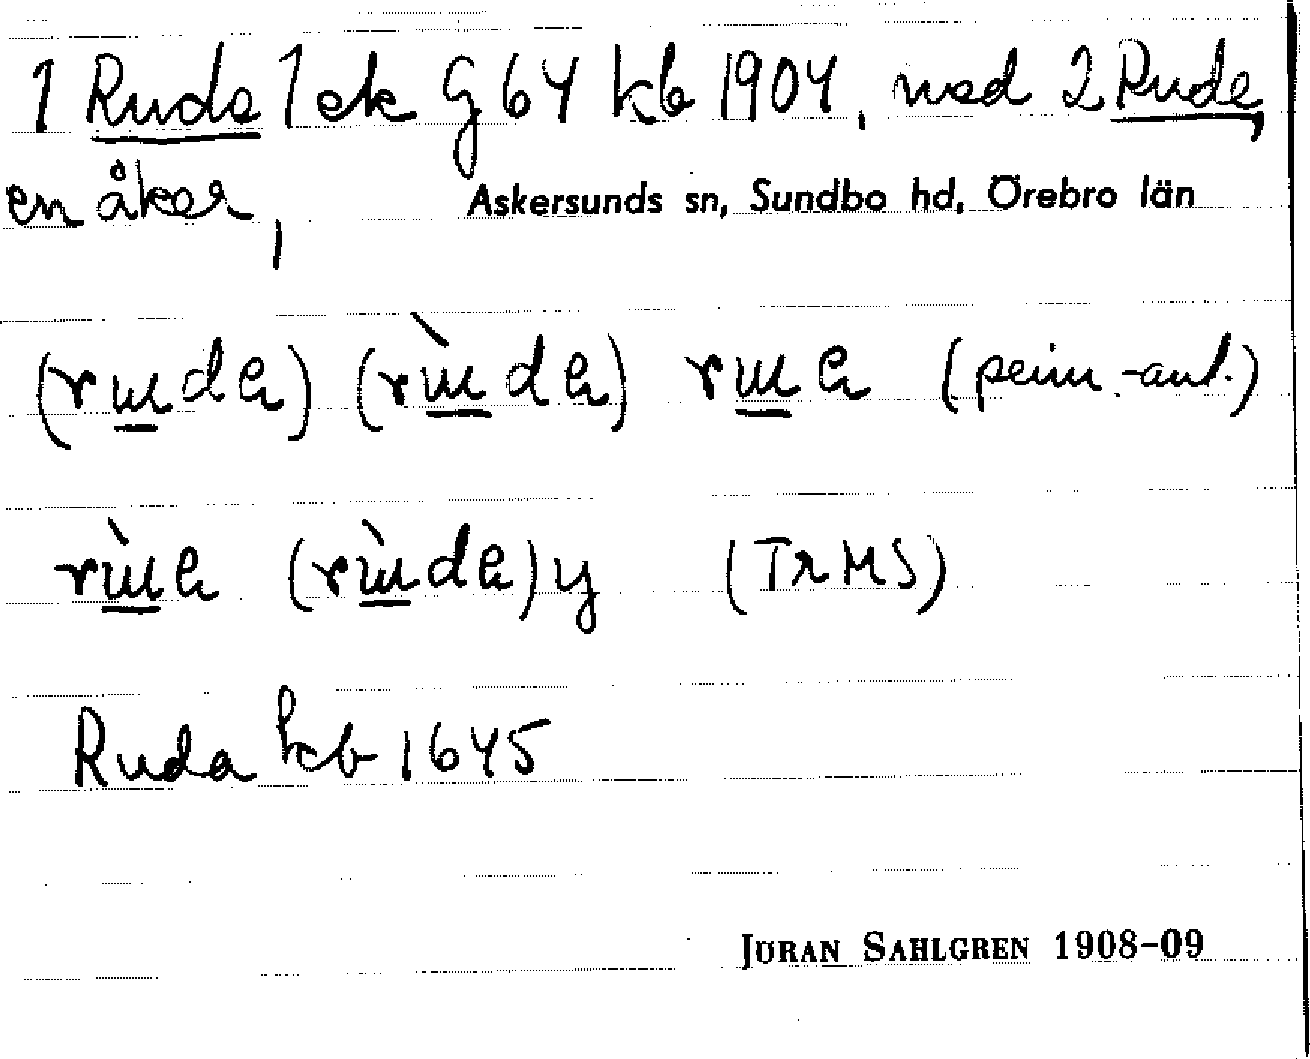 1 Ruda 1 ek G 64 kb 1904, med 2 Rude,
en åker, Askersunds sn, Sundbo hd, Örebro län
(rɯda) (rɯ̀da) rɯa (prim.-ant.)
rɯ̀a (rɯ̀da) y (TrHS)
Ruda kb 1645
JÖRAN SAHLGREN 1908-09